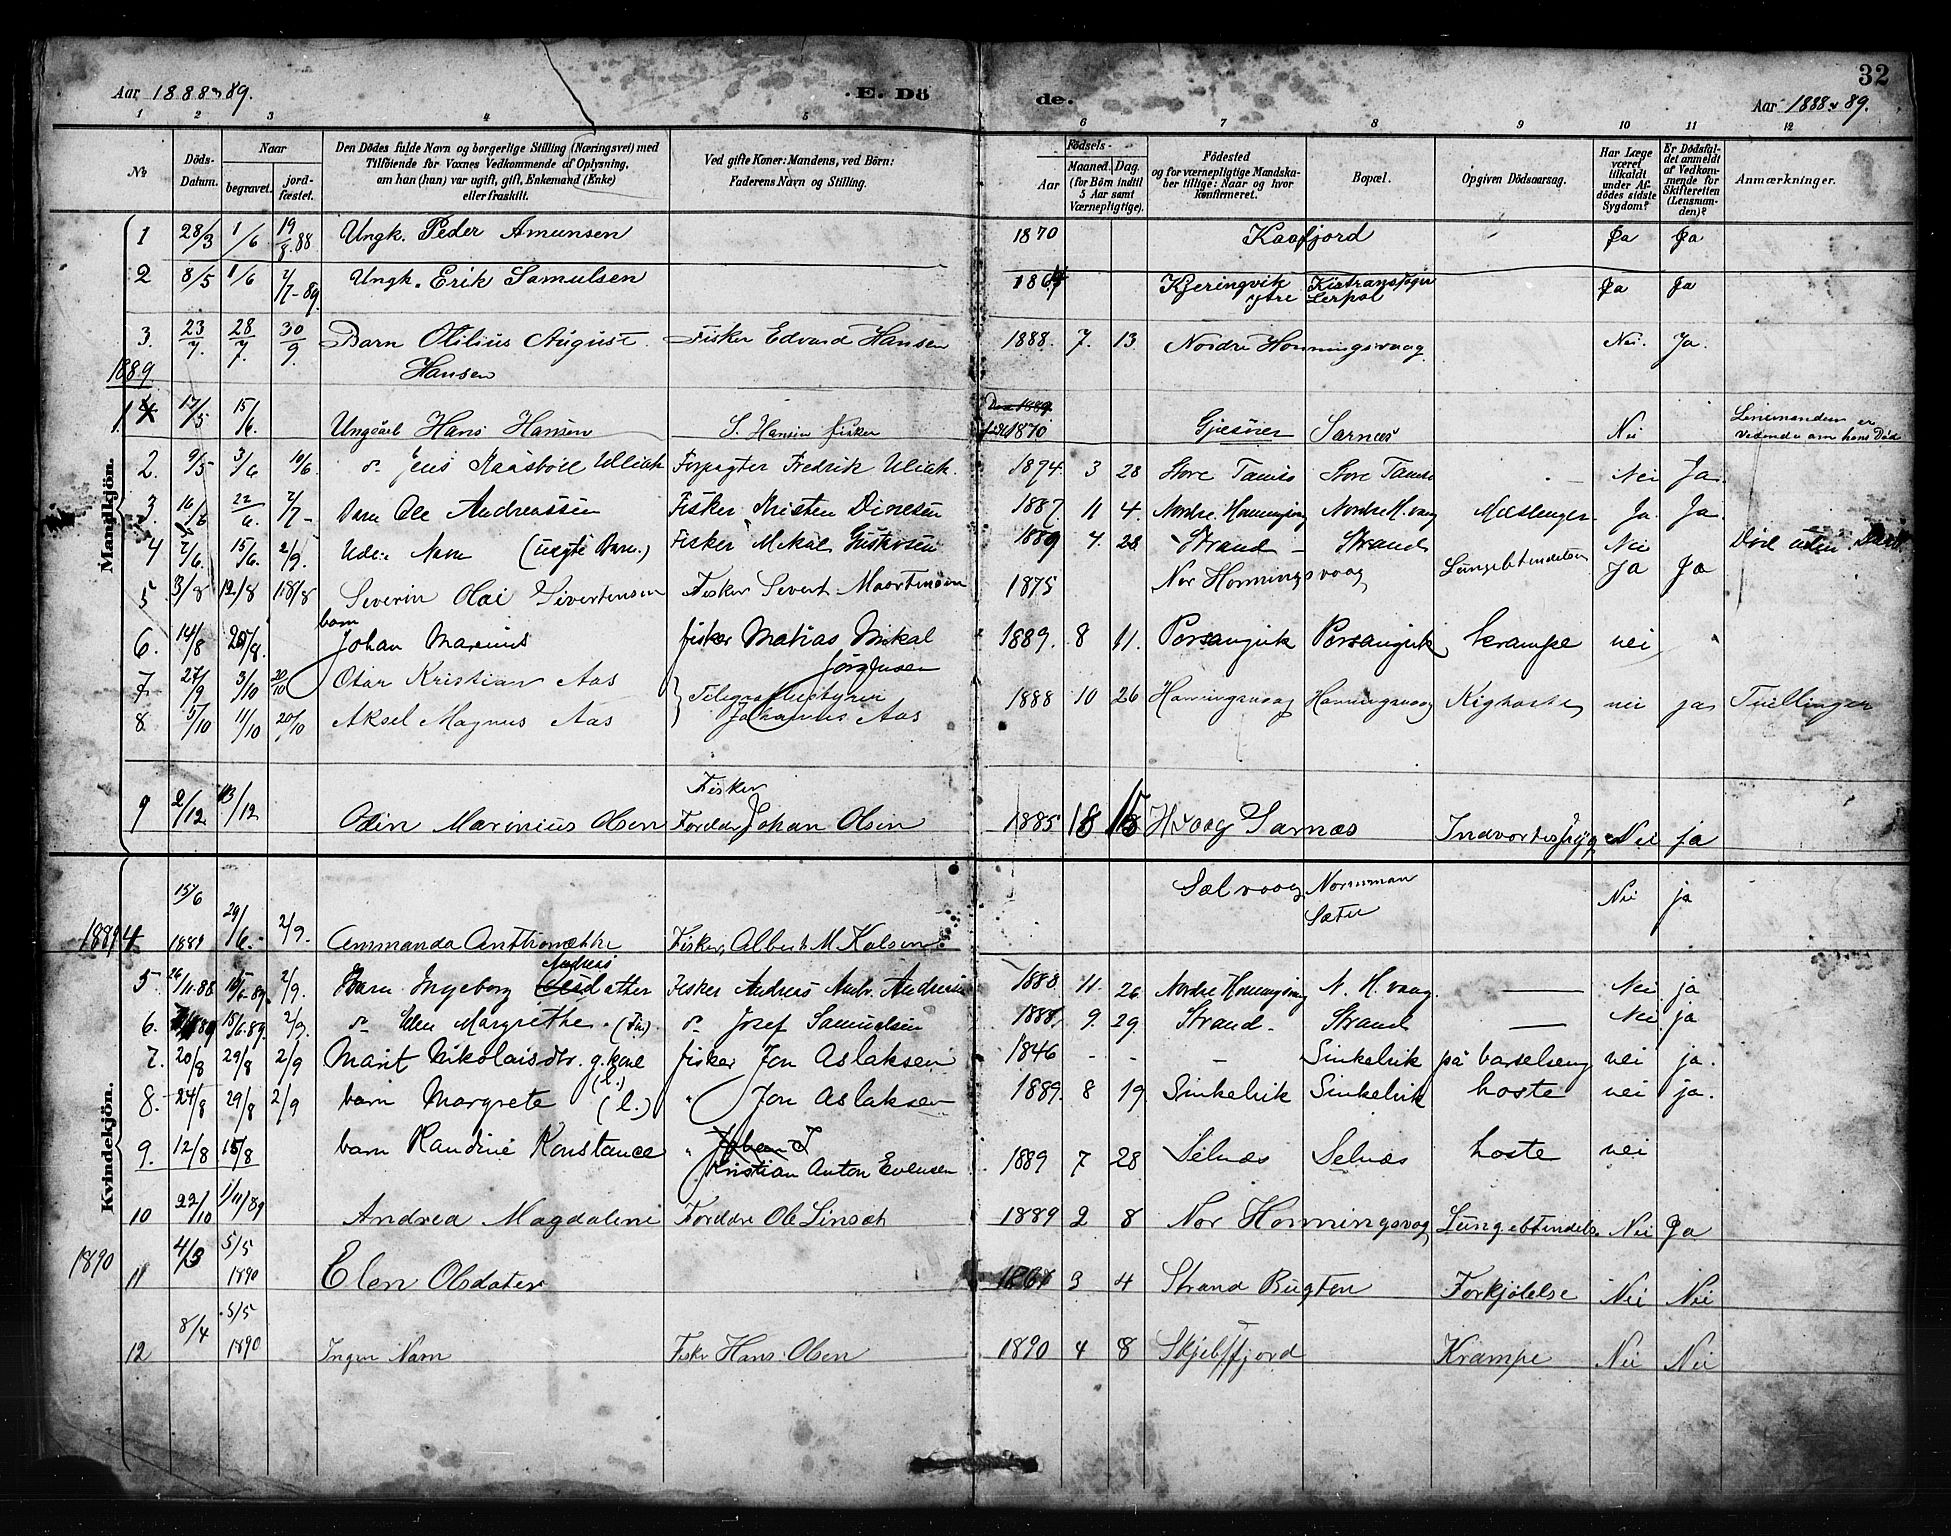 32
Aar 1888 & 89. E. Dö de. Aar 1888 & 89.
1 2 3 4 5 6 7 8 9 10 11 12
No
Döds-Datum.
Naar
begravet.
jord-fæstet.
Den Dödes fulde Navn og borgerlige Stilling (Næringsvei) med
Tilföiende for Voxnes Vedkommende af Oplysning,
om han (hun) var ugift, gift, Enkemand (Enke)
eller fraskilt.
Ved gifte Koner: Mandens, ved Börn:
Faderens Navn og Stilling.
Födsels-
Aar
Maaned. Dag.
(for Börn indtil
5 Aar samt
Værnepligtige).
Födested
og for værnepligtige Mandska-
ber tillige: Naar og hvor
konfirmeret.
Bopæl.
Opgiven Dödsaarsag.
Har Læge
været
tilkaldt
under Af-
dödes sidste
Sygdom?
Er Dödsfal-
det anmeldt
af Vedkom-
mende for
Skifteretten
(Lensman-
den)?
Anmærkninger.
Mandkjön.
1 28/3 1/6 19/8.88 Ungk. Peder Amunsen 1870 Kaafjord Ja Ja
2 8/5 1/6 2/7-89 Ungk. Erik Samulsen Kjeringvik ytre Lerpol Ja Ja
3. 23/7. 28/7. 30/9 Barn Otilius August Hansen Fisker Edvard Hansen 1888. 7. 13 Nordre Honningsvaag Nei. Ja.
1889
1 17/5 15/6. Ungkarl Hans Hansen S. Hansen fisker 1870 Gjesvær Sarnes Nei Linsmanden er vidende om hans Död
2. 9/5 3/6 10/6. Jens Ulrich Forpagter Fredrik Ulrich. 3 28 Store Tamsö Store Tamsö - Nei Ja.
3. 16/6 22/6. 2/7- Barn Ole Andreassen Fisker Kristen Diresen 1887 11 4. Nordre. Honningsvaag Nordre H. vaag Meslenger Ja. Ja.
4 2/6. 15/6. 2/9. Uden Navn (uægte Barn.) Fisker Mikal Gustavsen 1889 4. 28 Strand - Strand Nei Död uten Daab
5 3/8 12/8 18/8 Severin Olai Sivertensen Fisker Severt Maartensen 1875 Nor Honningsvaag Lungebetendelsen Ja Ja
6. 14/8 25/8. barn Johan Marinus fisker Matias Mikal Jörgensen 1889. 8 11. Porsangvik Porsangvik krampe nei
7 27/9 3/10 20/10 Otar Kristian Aas
8. 5/10 11/10 20/10 Aksel Magnus Aas Telegrafbestyrer Johannes Aas 1888 10 26 Honningsvaag Honningsvaag Kighoste nei ja Tvillinger
9 2/12 13/12 Odin Marinius Olsen Fisker Foreldre Johan Olsen 1885 18 15 H.vaag Sarnæs Indvortes Syg Nei ja
Kvindekjön.
1889 4 15/6 1889 29/6.- 2/9. Ammanda Antionette Fisker, Albert M Kalsen Sælvaag Normman Sæter Nei ja
5. 26/11.88 15/6.89. 2/9. Barn Ingeborg Andreasdatter Fisker Andreas Andr. Andresen 1888 11. 26 Nordre Honningsvaag N. H. vaag. — Nei ja
6. 15/6.89. 2/9. Elen Margrethe. (Fin) Josef Samuelsen 1888. 9. 29 Strand. Strand — Nei ja
7. 20/8 29/8 2/9 Marit Nikolaisdtr. g. kone (l.) fisker Jon Aslaksen 1846 - - - Sinkelvik på barselseng nei ja.
8. 24/8 29/8 2/9 barn Margrete (l.) " Jon Aslaksen 1889. 8 19 Sinkelvik Sinkelvik hoste nei ja.
9. 12/8 18/8 barn Randine Konstance " Kristian Anton Evensen 1889 7 28 Selnæs Selnæs hoste nei
10 22/10 1/11/89 Andrea Magdaleni Foreldre Ole Linsæt 1889 2 8 Nor Honningsvaag Lungebtendels. Nei Ja
1890
11 4/3 5/5 1890 Elen Olsdater 3 4 Strand Bugten Forkjölelse Nei Nei
12 8/4 5/5 1890 Ingen Navn Fisker Hans. Olsen 1890 4 8 Skjelfjord Krampe Nei Nei